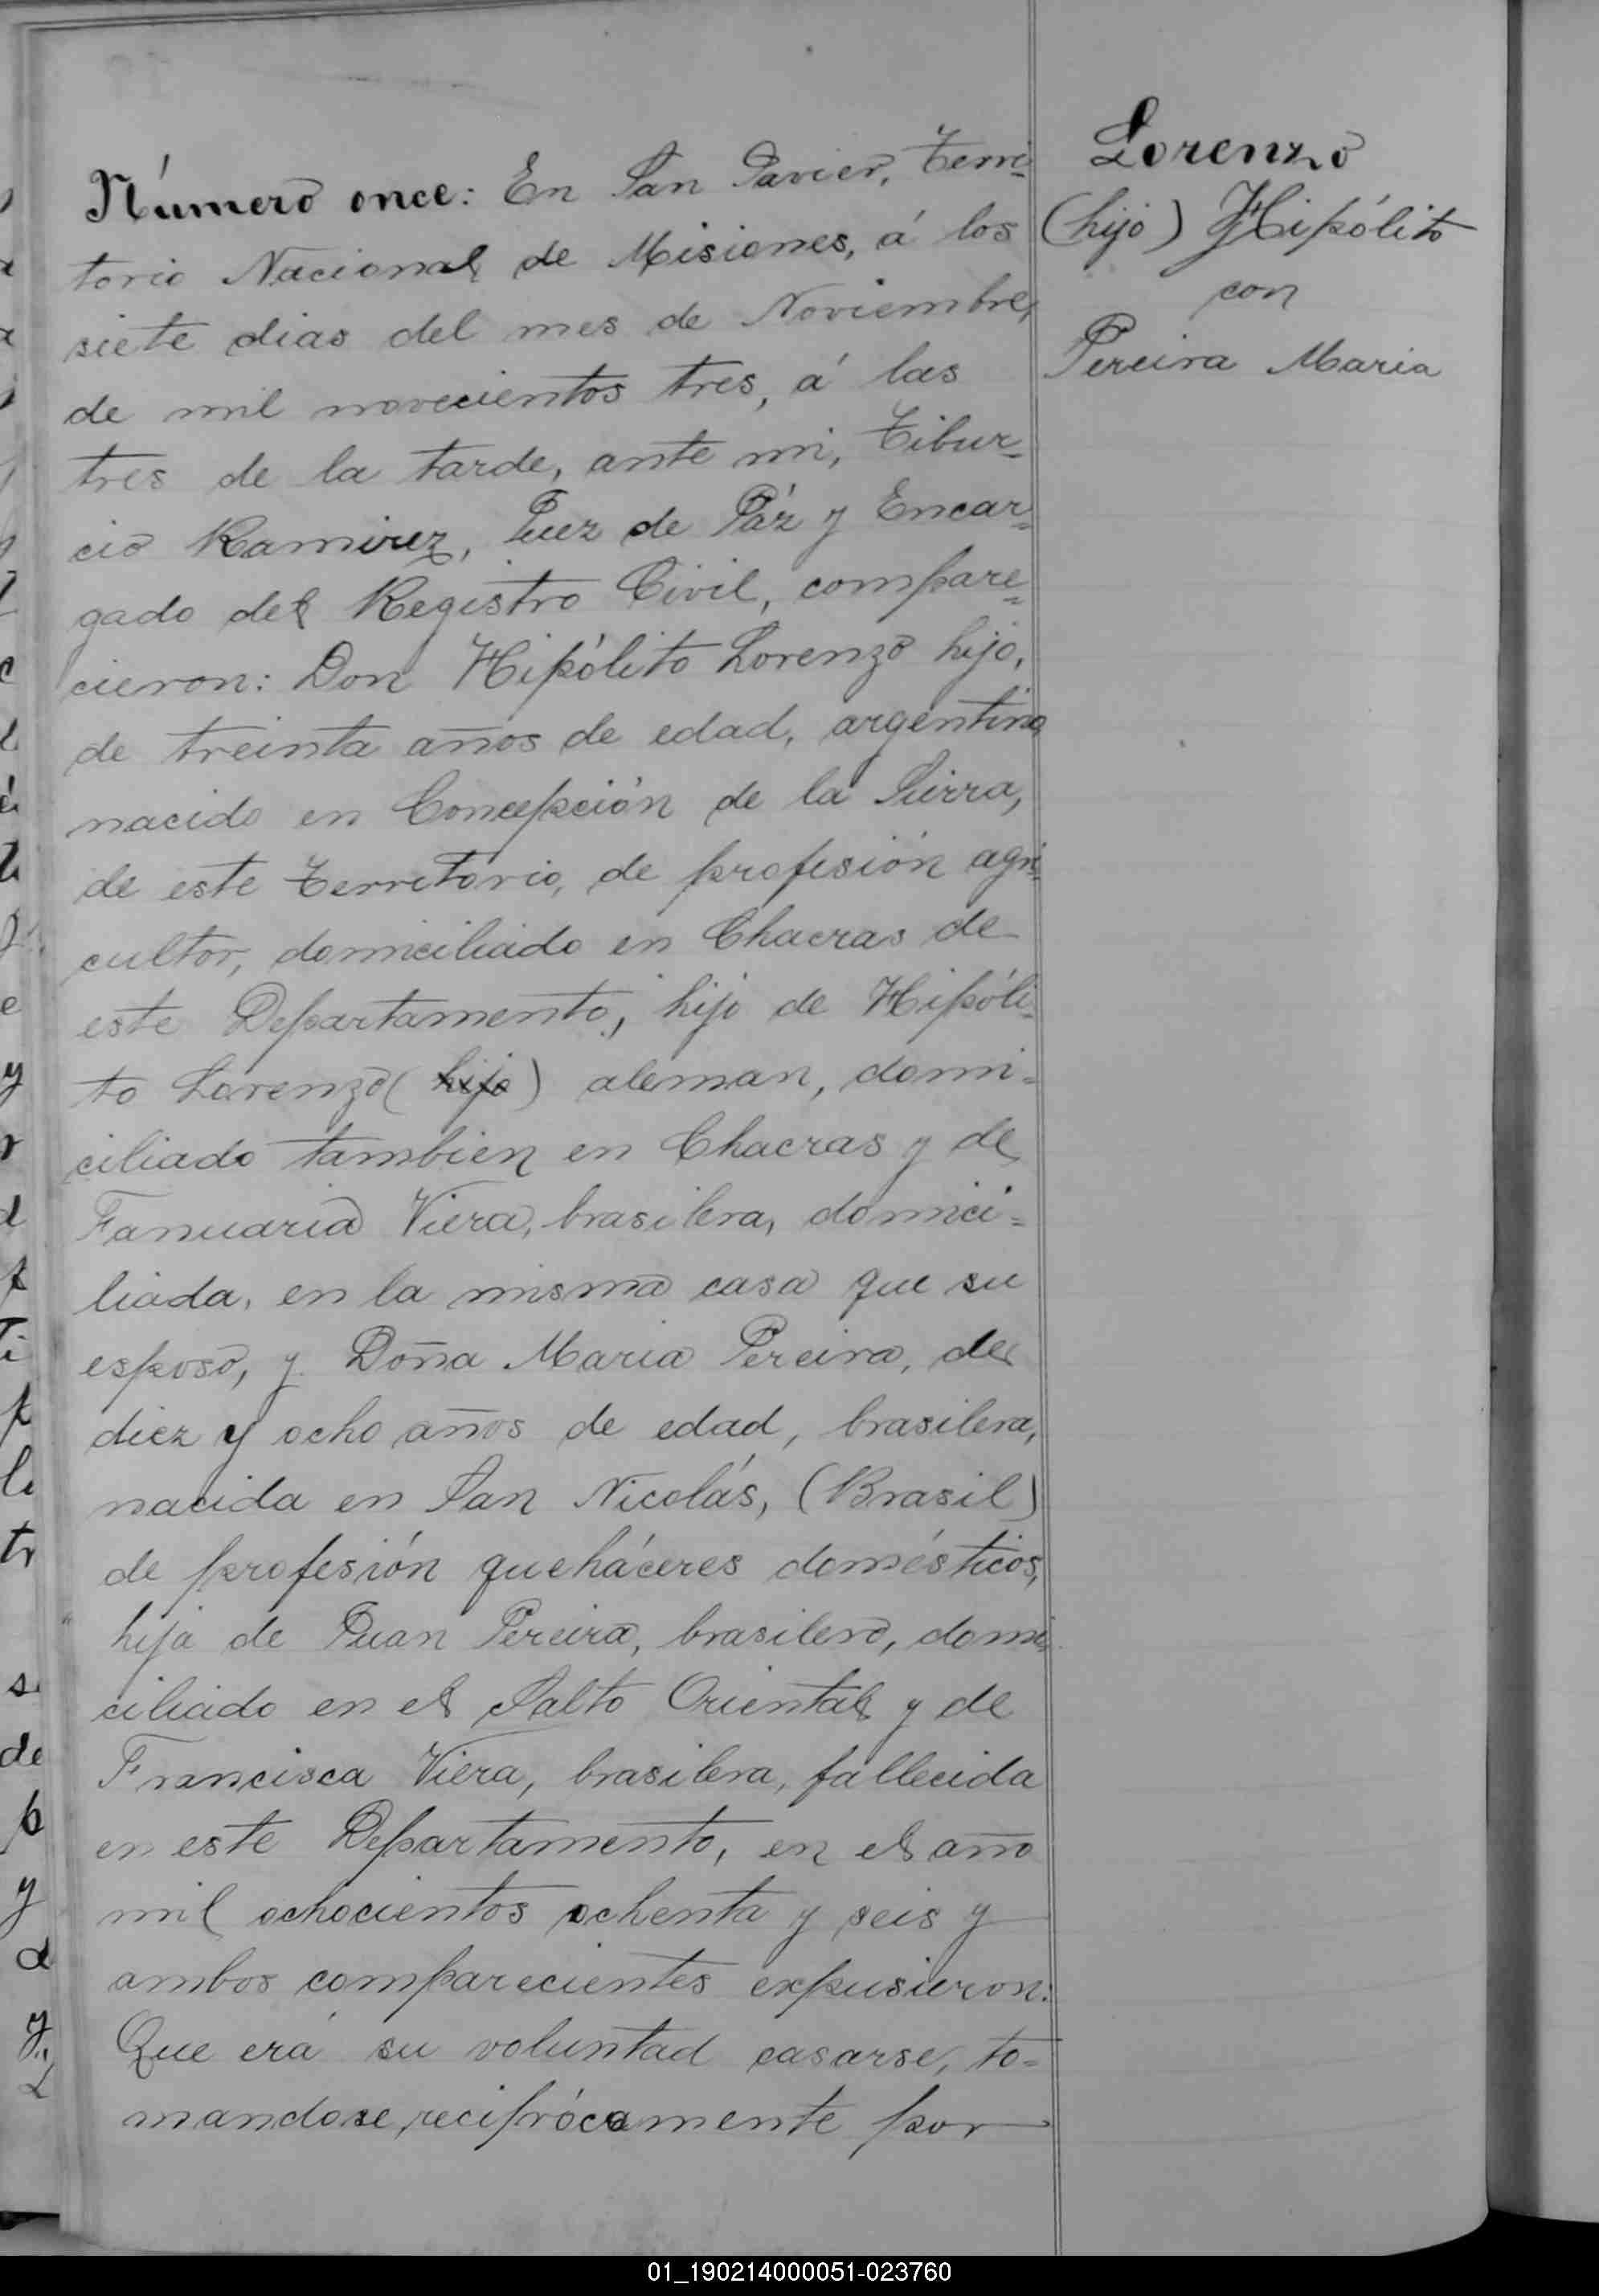 Número once: En San Javier, Terri=
torio Nacional de Misiones, á los
siete dias del mes de Noviembre,
de mil novecientos tres, á las
tres de la tarde, ante mi, Tibur=
cio Ramirez, Juez de Páz y Encar=
gado del Registro Civil, compare=
cieron: Don Hipólito Lorenzo hijo,
de treinta años de edad, argentino,
nacido en Concepción de la Sierra,
de este Territorio, de profesión agri=
cultor, domiciliado en Chacras de
este Departamento, hijo de Hipóli=
to Lorenzo (hijo) aleman, domi=
ciliado tambien en Chacras y de
Januaria Viera, brasilera, domici=
liada, en la misma casa que su
esposo, y Doña Maria Pereira, de
diez y ocho años de edad, brasilera,
nacida en San Nicolás, (Brasil)
de profesión queháceres domésticos,
hija de Juan Pereira, brasilero, domi
ciliado en el Salto Oriental y de
Francisca Viera, brasilera, fallecida
en este Departamento, en el año
mil ochocientos ochenta y seis y
ambos comparecientes expusieron:
Que era su voluntad casarse, to=
mandose, reciprócamente por
Lorenzo
(hijo) Hipólito
con
Pereira Maria
01_190214000051-023760